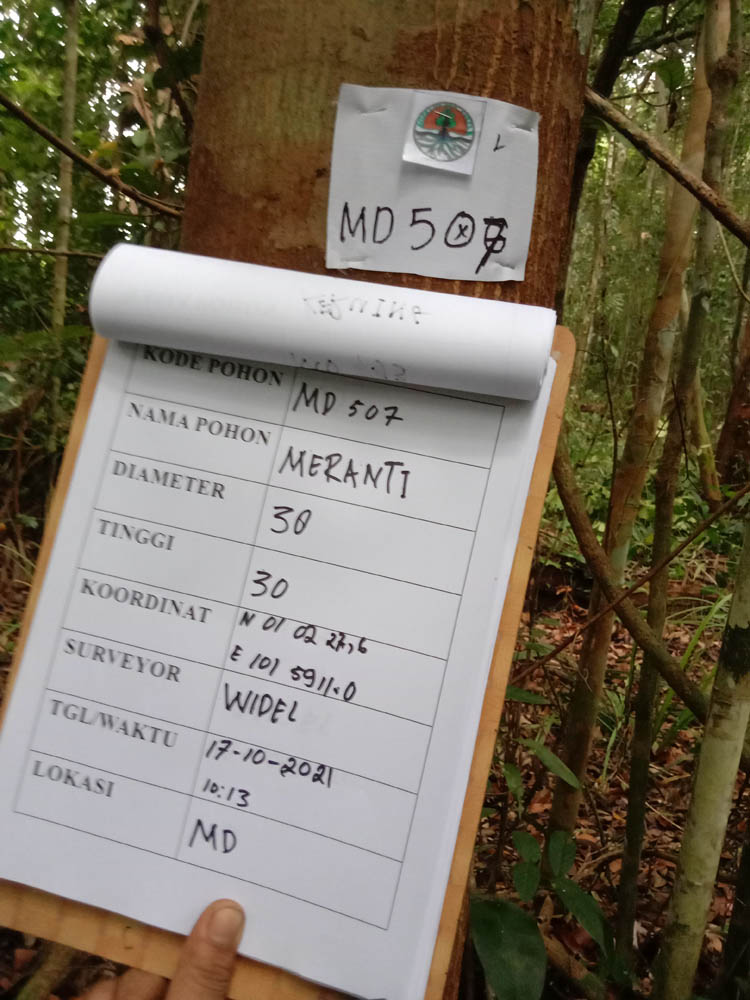 MD 507
KODE POHON MD 507
NAMA POHON MERANTI
DIAMETER 30
TINGGI 30
KOORDINAT N 01 02 27,6
E 101 59 11.0
SURVEYOR WIDEL
TGL/WAKTU 17-10-2021
10:13
LOKASI MD